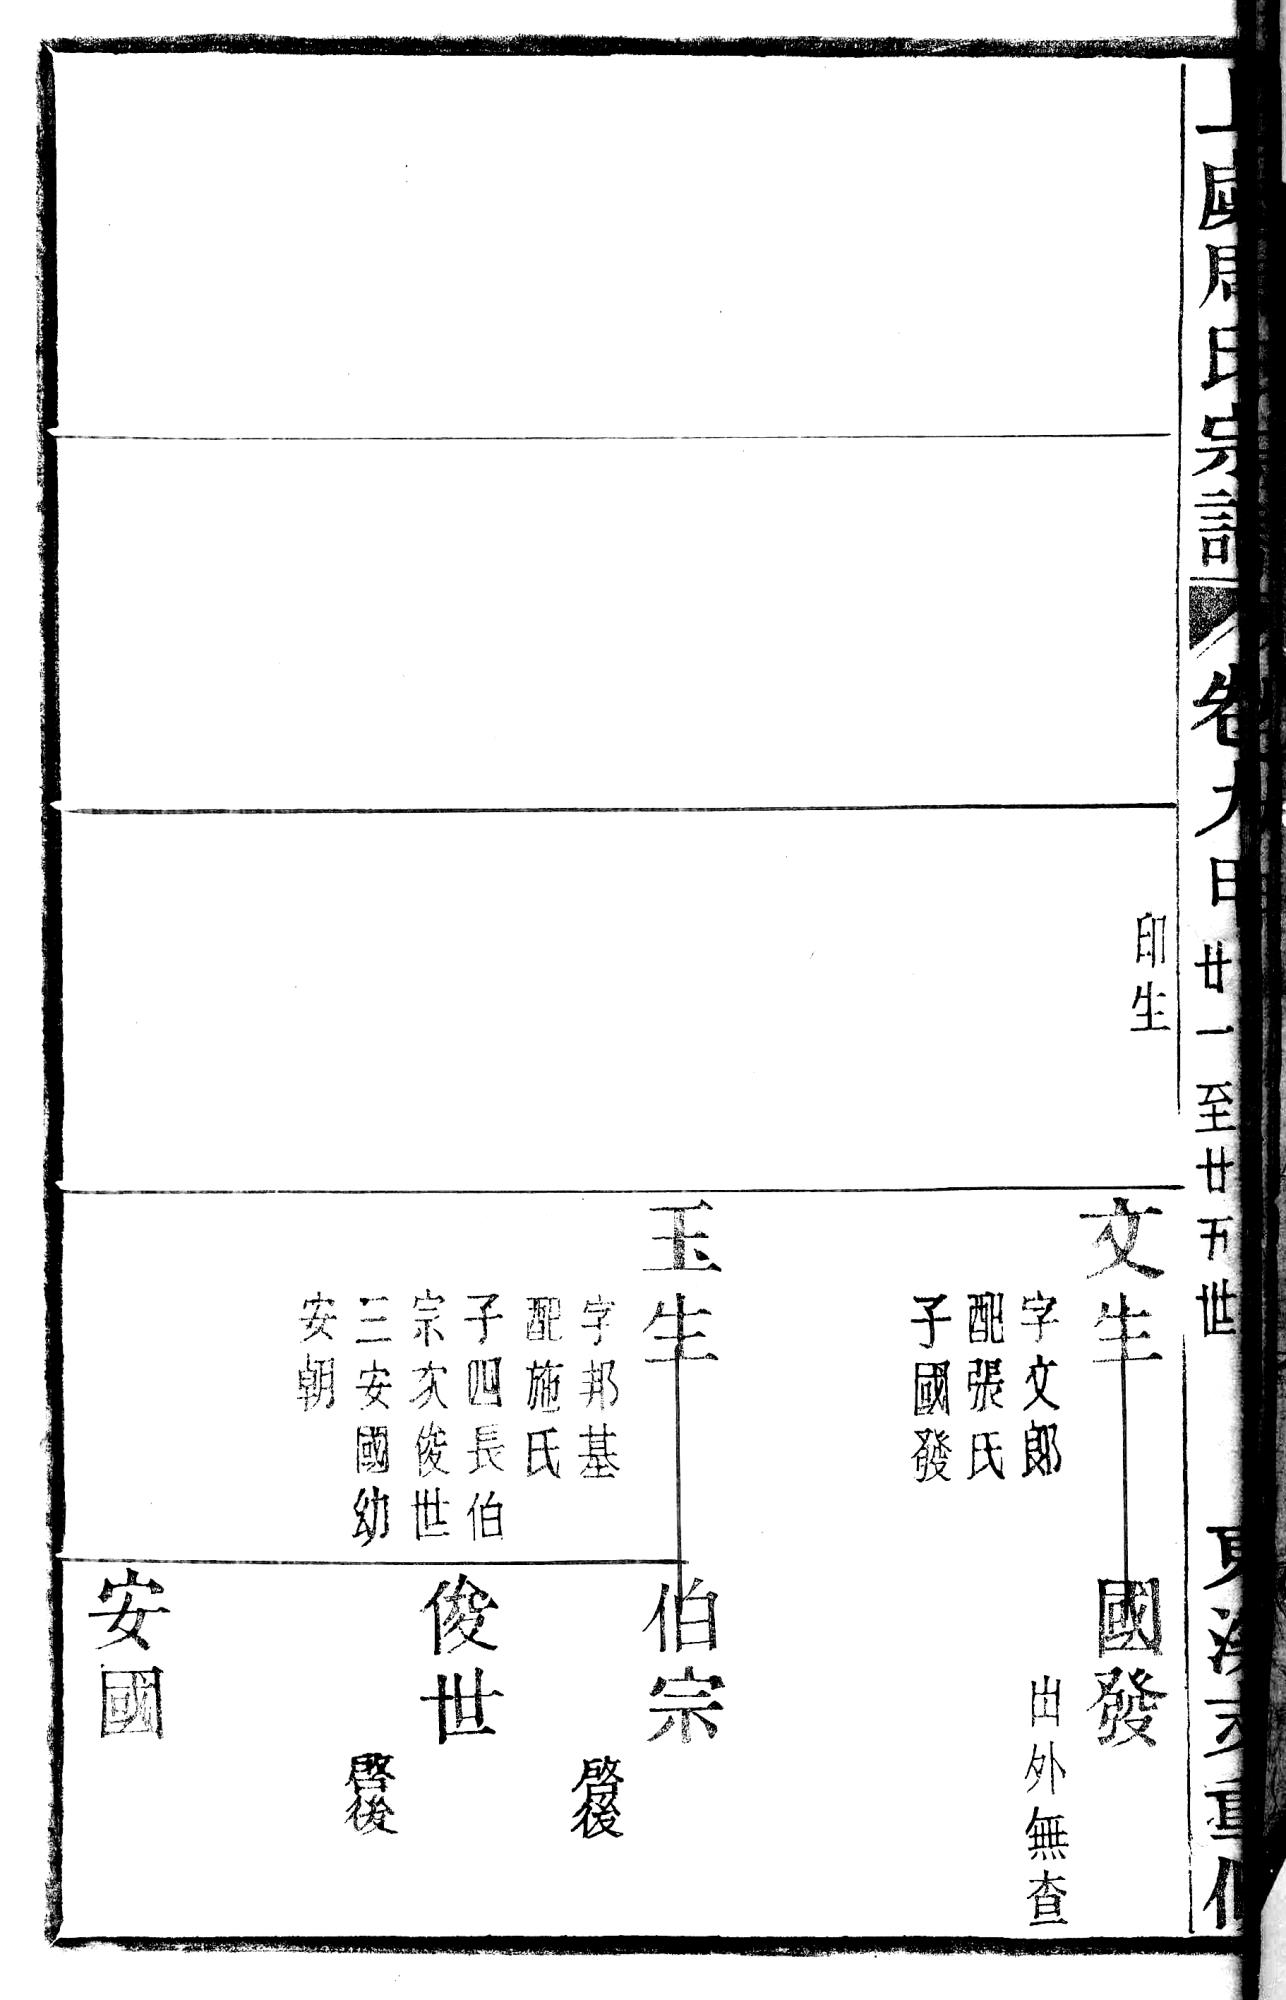 上虞周氏宗譜
卷九
廿一至廿五世
印生
文生
字文郎
配張氏
子國發
玉生
字邦基
配施氏
子四長伯
宗次俊世
三安國幼
安朝
國發
出外無查
伯宗
啓後
俊世
啓後
安國